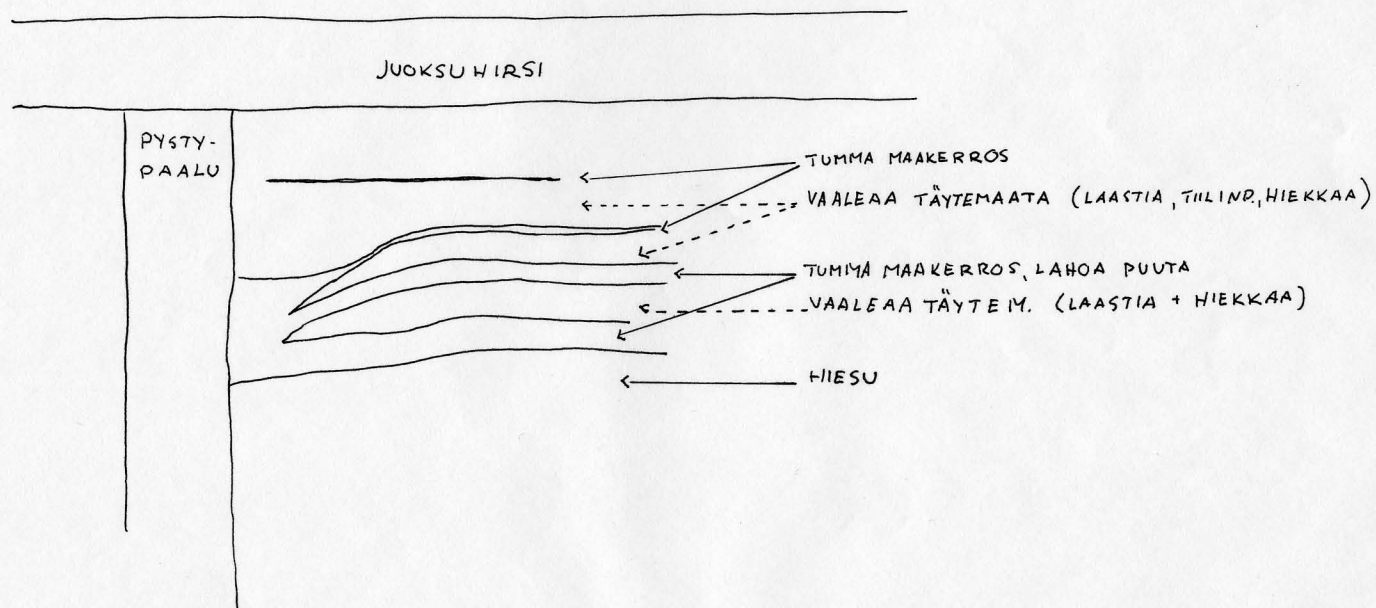 JUOKSUHIRSI
PYSTY-
PAALU
TUMMA MAAKERROS
VAALEAA TÄYTEMAATA (LAASTIA, TIILIND., HIEKKAA)
TUMMA MAAKERROS, LAHOA PUUTA
VAALEAA TÄYTEM. (LAASTIA + HIEKKAA)
HIESU